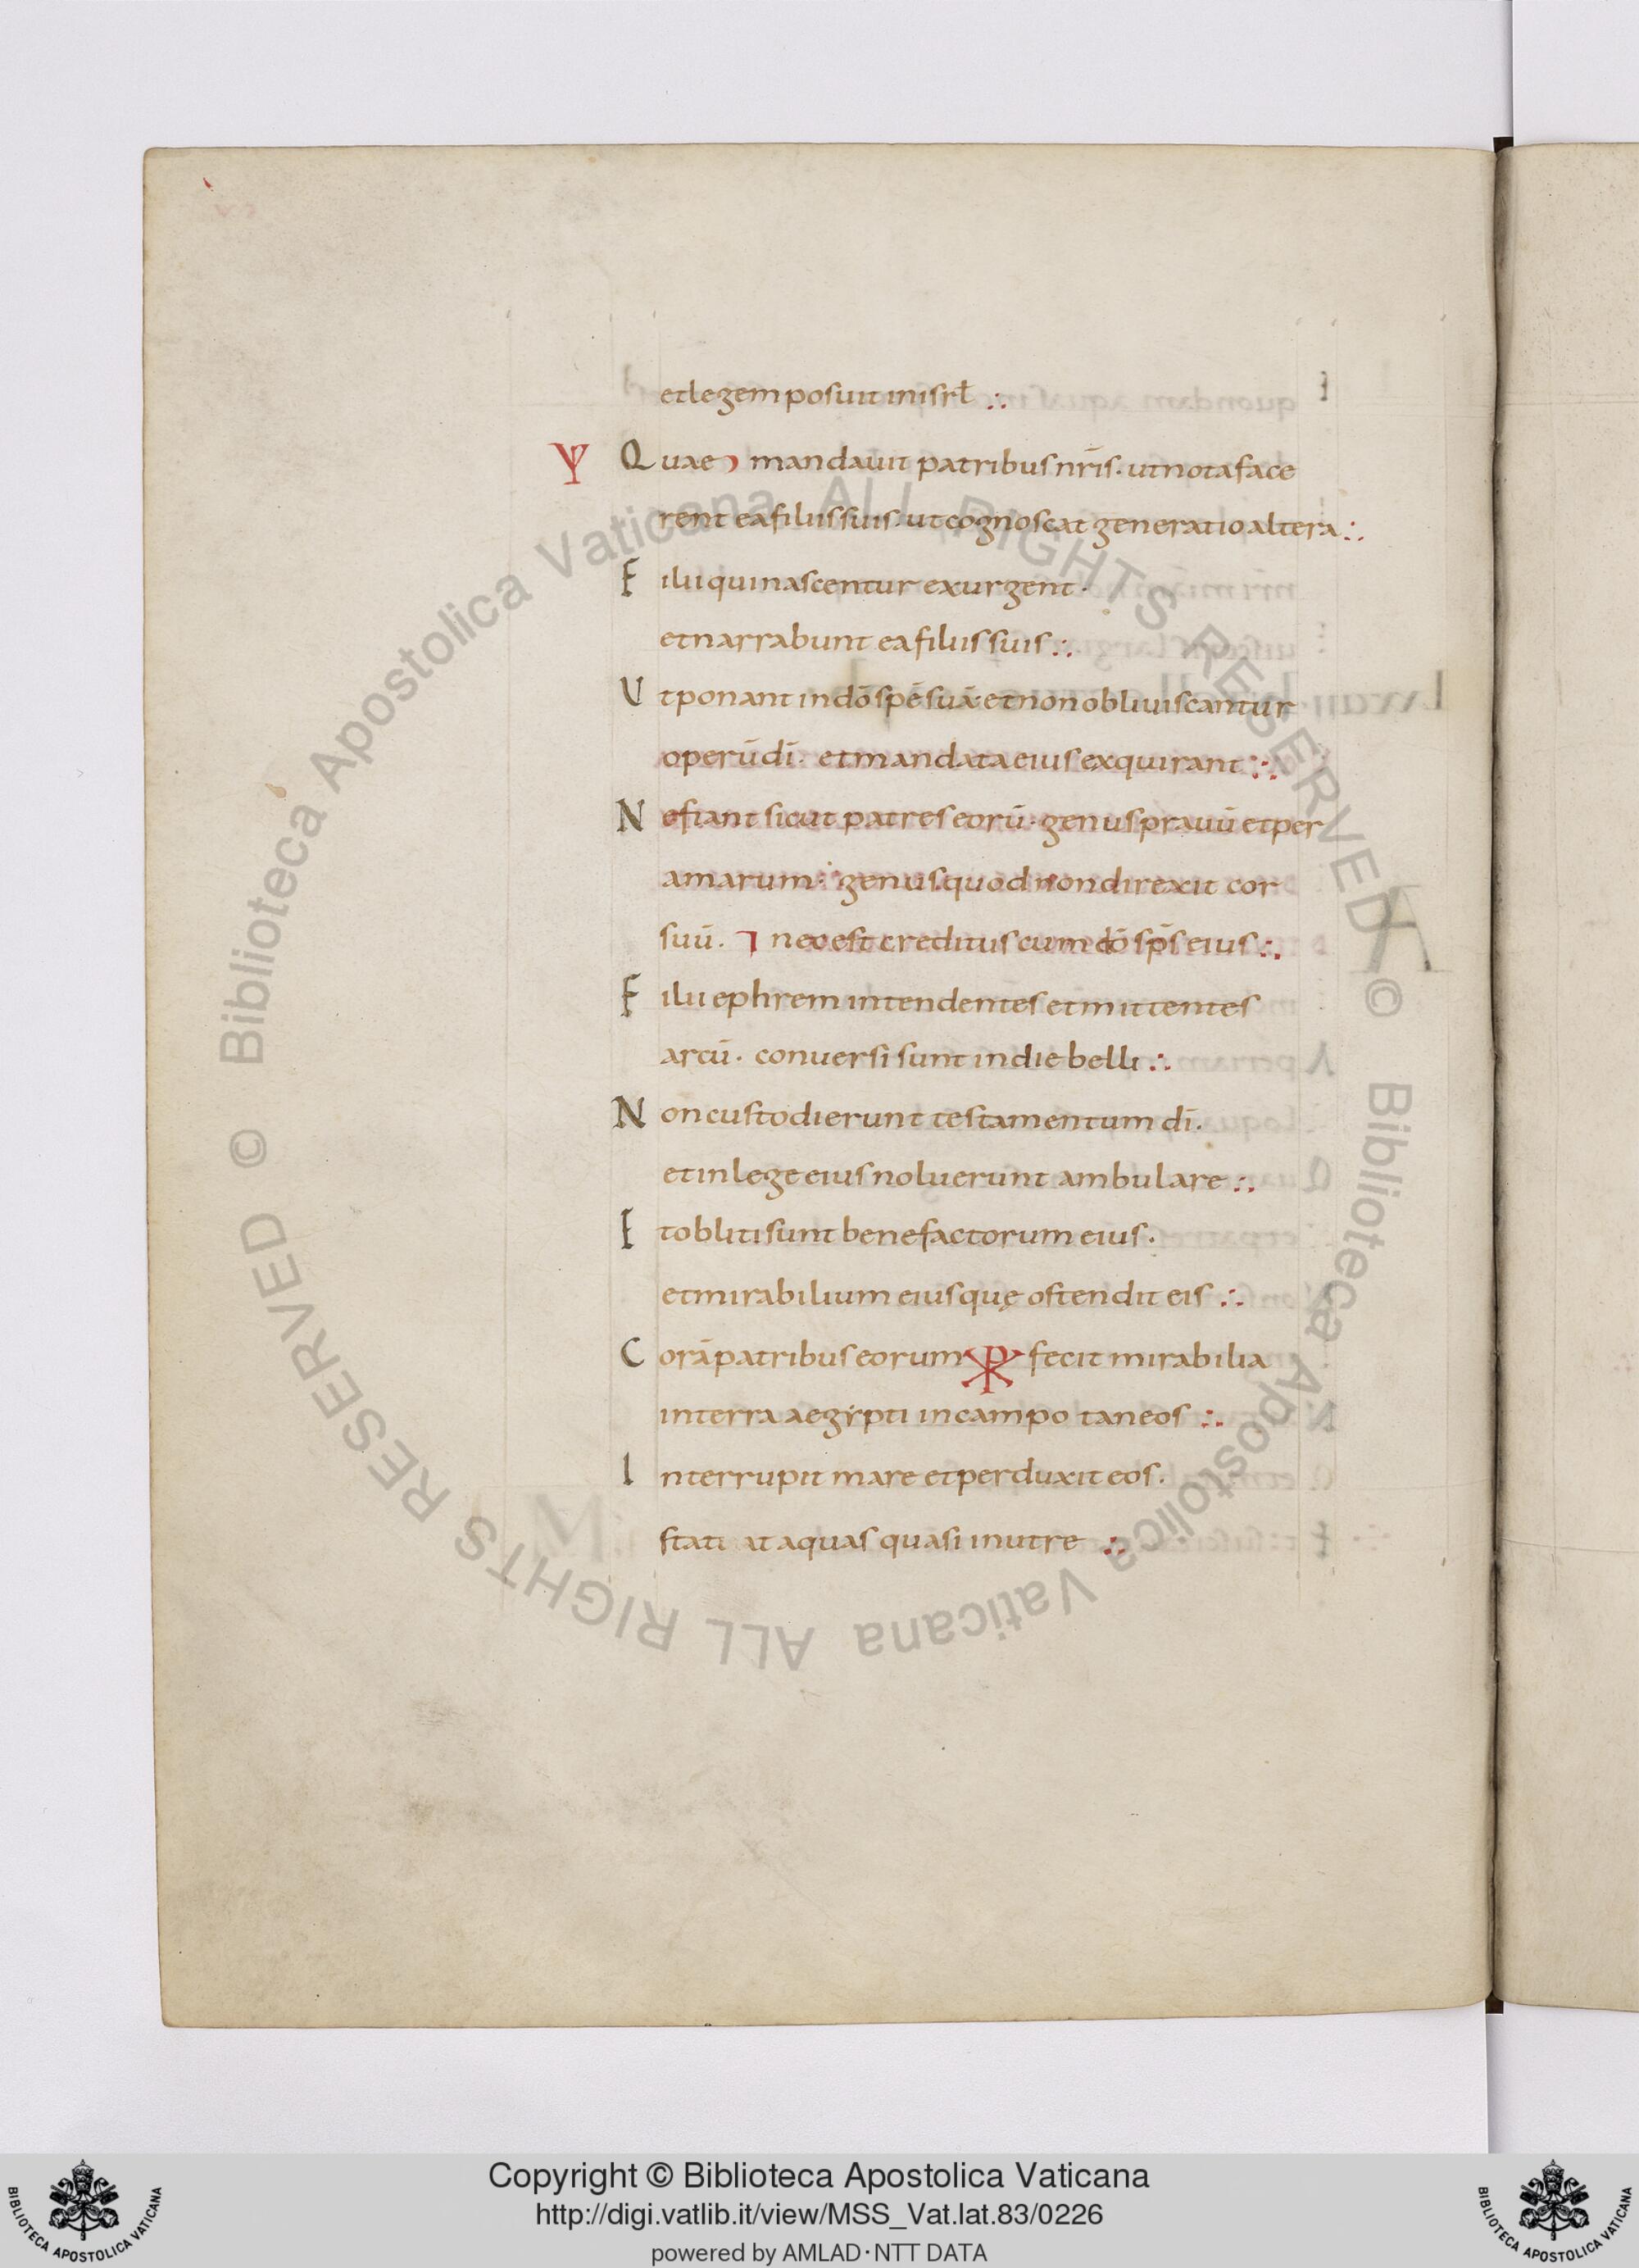 et legem posuit in isrł ∴
Quae mandauit patribus nr̄is · ut nota face
rent ea filiis suis · ut cognoscat generatio altera ∴
Filii qui nascentur exurgent ·
et narrabunt ea filiis suis ∴
Ut ponant in dō spē suā · et non obliuiscantur
operū dī · et mandata eius exquirant ∴
Ne fiant sicut patres eorū · genus prauū et per
amarum · genus quod non direxit cor
suū · nec est creditus cum dō sp̄s eius ∴
Filii ephrem intendentes et mittentes
arcū · conuersi sunt in die belli ∴
Non custodierunt testamentum dī ·
et in lege eius noluerunt ambulare ∴
Et obliti sunt benefactorum eius ·
et mirabilium eius quę ostendit eis ∴
Corā patribus eorum ☧ fecit mirabilia
in terra aegẏpti in campo taneos ∴
Interrupit mare et perduxit eos ·
aquas quasi in utre ∴
© Biblioteca Apostolica Vaticana ALL RIGHTS RESERVED © Biblioteca Apostolica Vaticana ALL RIGHTS RESERVED
Copyright © Biblioteca Apostolica Vaticana
http://digi.vatlib.it/view/MSS_Vat.lat.83/0226
powered by AMLAD·NTT DATA
BIBLIOTECA APOSTOLICA VATICANA
BIBLIOTECA APOSTOLICA VATICANA